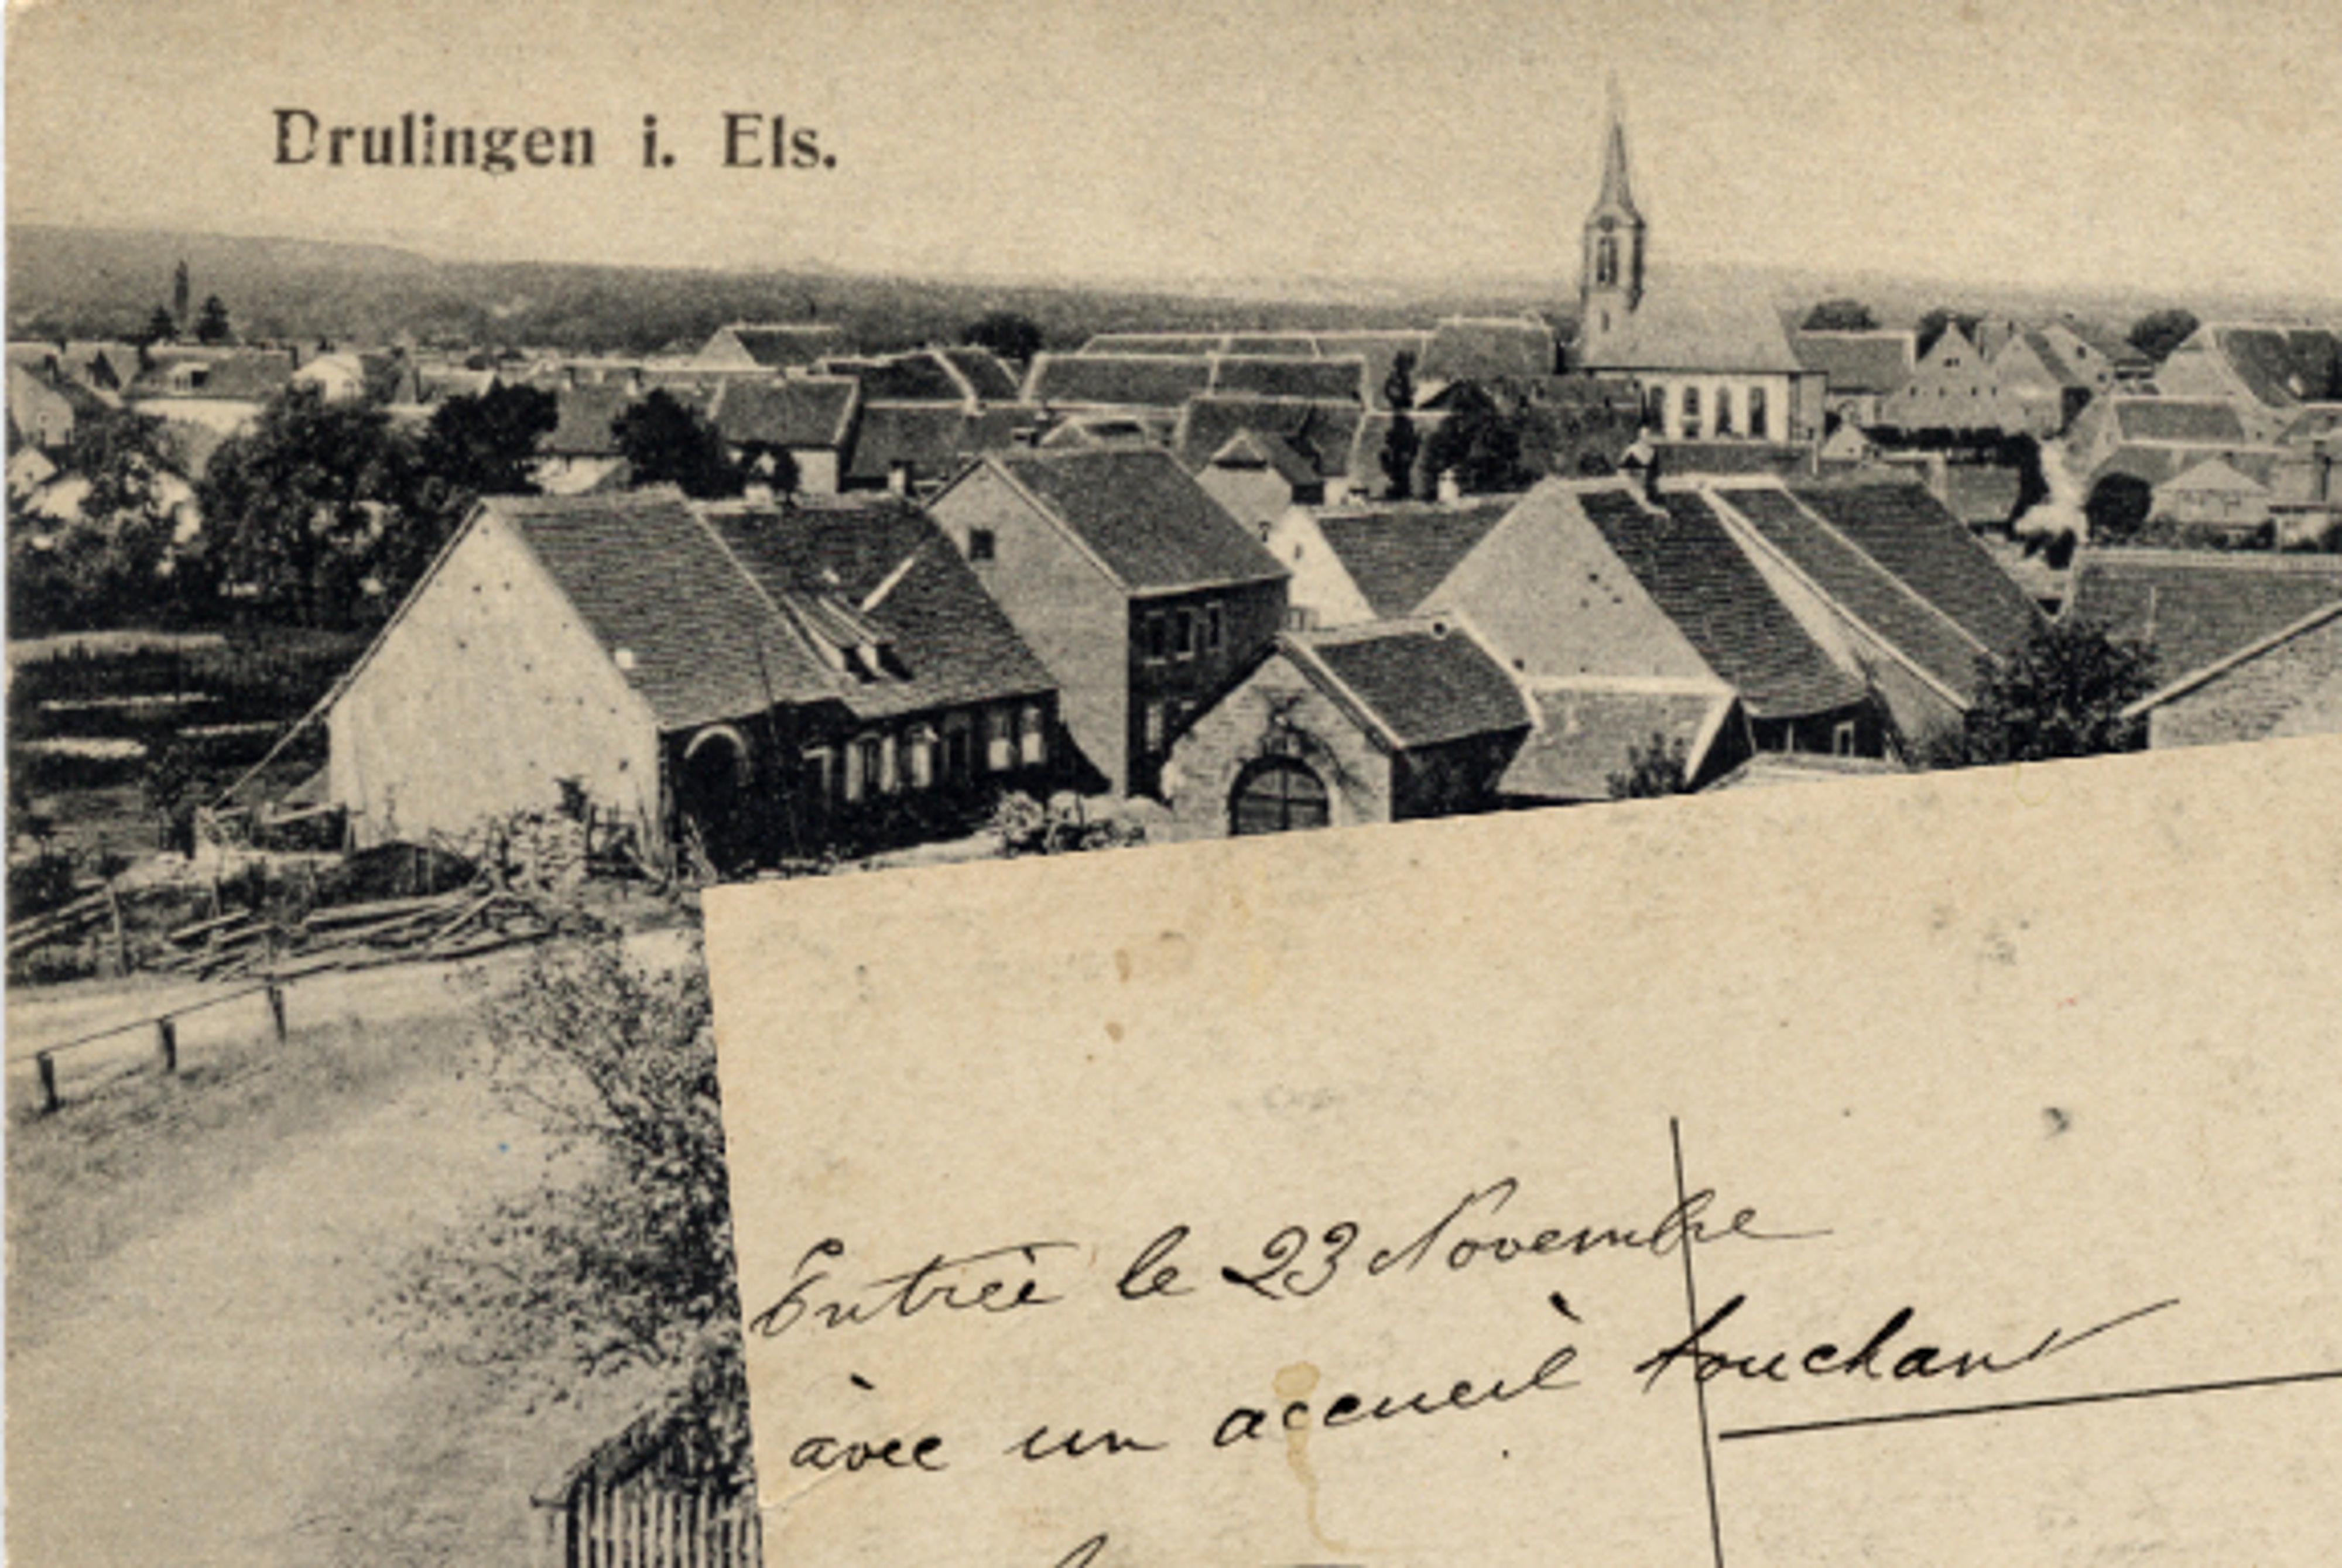 Drulingen i. Els.
Entrée le 23 Novembre
àvec un accueil touchant